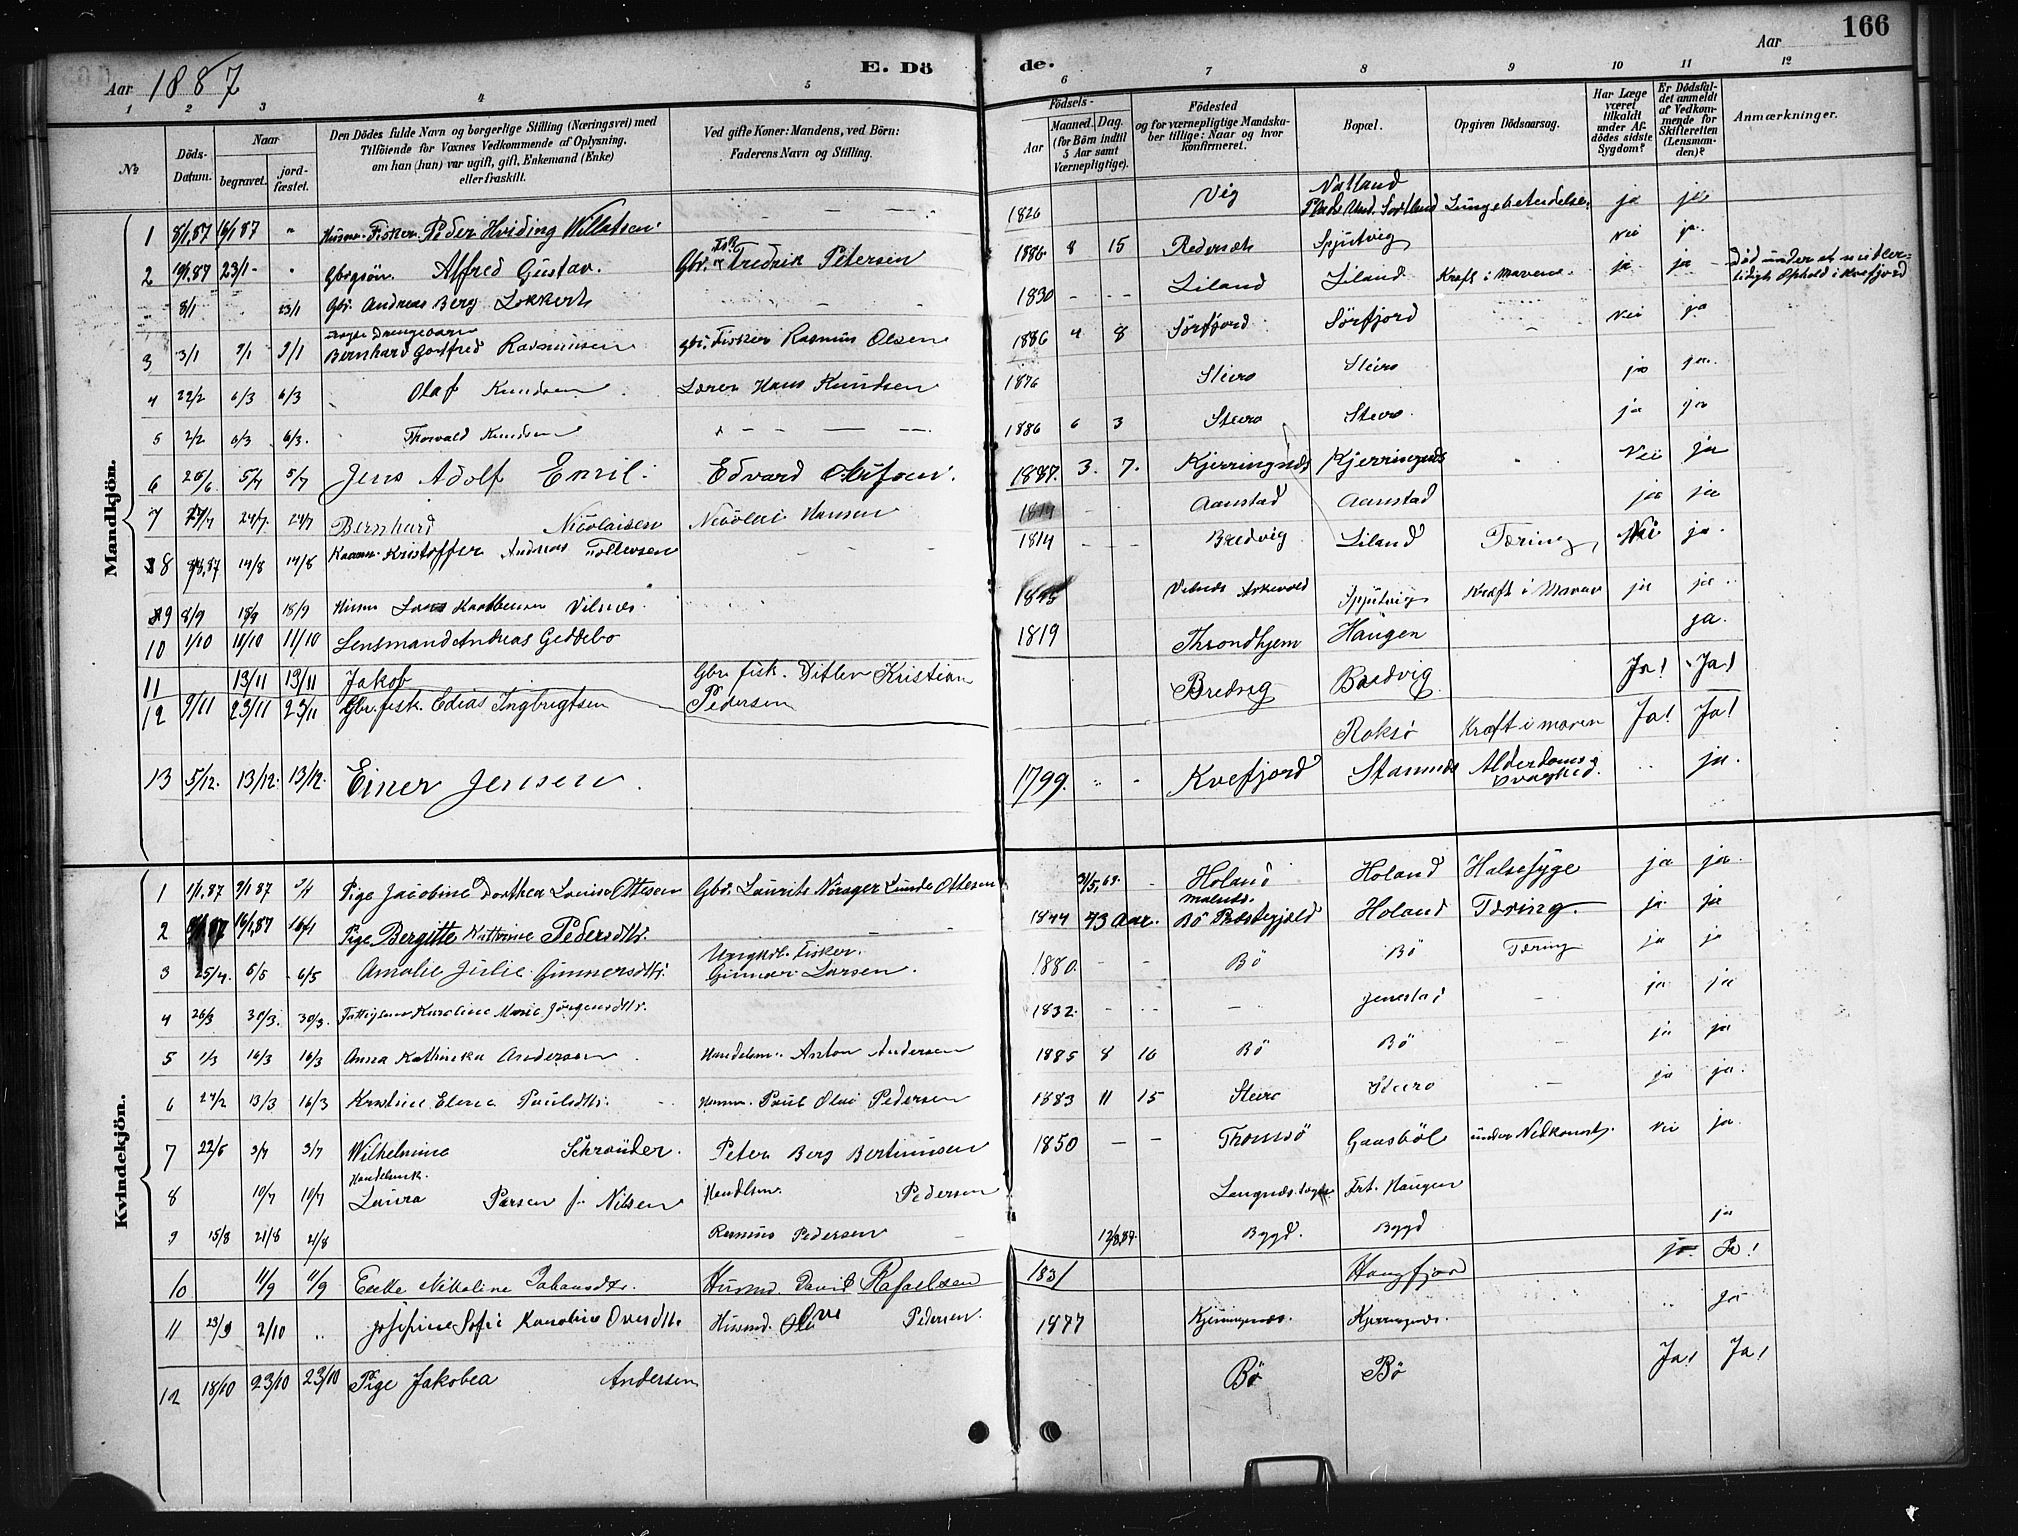 166
Aar 1887
E. Dö
de.
Aar
1 2 3 4 5 6 7 8 9 10 11 12
No
Döds-Datum.
Naar
begravet.
jord-fæstet.
Den Dödes fulde Navn og borgerlige Stilling (Næringsvei) med
Tilföiende for Voxnes Vedkommende af Oplysning,
om han (hun) var ugift, gift, Enkemand (Enke)
eller fraskilt.
Ved gifte Koner: Mandens, ved Börn:
Faderens Navn og Stilling.
Födsels-
Aar
Maaned. Dag.
(for Börn indtil
5 Aar samt
Værnepligtige).
Födested
og for værnepligtige Mandska-
ber tillige: Naar og hvor
konfirmeret.
Bopæl.
Opgiven Dödsaarsag.
Har Læge
været
tilkaldt
under Af-
dödes sidste
Sygdom?
Er Dödsfal-
det anmeldt
af Vedkom-
mende for
Skifteretten
(Lensman-
den)?
Anmærkninger.
Mandkjön.
1 8/1.87 16/1 87 " Husm. Fisker Peder Hviding Willatsen 1826 Vig Natland Lungebetendelse ja ja
2 10/1.87 23/1 - " Gbrgsön. Alfred Gustav. Gbr. Fredrik Petersen 1886 8 15 Rødersæt Spjutvig Nei ja
8/1 23/1 Gbr. Andreas Berg Lokkert 1830 - - - Liland Liland Kræft i Maven ja ja Död under et midler-
tidigt Ophold i Kvefjord
3 3/1 9/1 9/1 Bernhard Gotfred Rasmussen gbr. Fisker Rasmus Olsen 1886 4 8 Sörfjord Sörfjord - Nei ja
4 22/2 6/3 6/3 Olaf Knudsen Lærer Hans Knudsen 1876 Steiro Steiro ja ja
5 2/2 6/3 6/3. Thorvald Knudsen 1886 6 3 Steiro Steiro. ja ja
6 26/6 5/7 5/7 Jens Adolf Emil. Edvard 1887. 3. 7. Kjerringnes Kjerringnes " Nei ja
7 24/7. 24/7 Bernhard Nicolaisen Nicolai Hansen Aanstad Aanstad ja ja
8 14/8 14/8 Kristoffer Andreas Tollevsen 1814 - - Bredvig Liland Tæring Nei ja.
9 8/9 18/9 18/9 Husm Vilnes. Spjutvig Kræft i Maven ja ja
10 1/10 11/10 11/10 Lensmand Andreas Geddebo 1819 Throndhjem Haugen ja.
11 13/11 13/11 Jakob Gbr. fisk. Ditlev Kristian
Pedersen Bredvig Bredvig Ja! Ja!
12 9/11 23/11 23/11 Gbr. fisk. Edias Ingbrigtsen Roksö Kræft i maven Ja! Ja!
13 5/12. 13/12. 13/12. Einer Jensen 1799. " - Kvefjord Stannes Alderdoms
Svaghed. .. ja.
Kvindekjön.
1 1/1.87 9/1 87 9/1 Pige Jacobine Dorthea Louise Ottesen Gbr. Laurits Nörager Lunde Ottesen 21/5.69. - Holand Holand Halsesyge ja ja.
2 16/1.87 16/1 Pige Bergitte Kathrine Pedersdtr. 1844 43 Aar. Malnes.
Bö Præstegjeld Holand Tæring. ja ja
3 25/4. 6/5 6/5 Amalie Julie Gunnersdtr. Ungkrl. Fisker.
Gunnar Larsen. 1880. - - Bö Bö Tæring ja ja
4 26/3 30/3. 30/3. Karoline Marie Jörgensdtr. 1832. - - - - Jenestad - ja ja
5 1/3 16/3 16/3 Anna Kathinka Andersen Handelsm. Anton Andersen 1885 8 10 Bö Bö ja ja
6 24/2 13/3 16/3 Kristine Elena Paulsdtr. Husm. Paul Olai Pedersen 1883 11 15 Steiro Steiro - ja ja.
7 22/6 3/7 3/7 Wilhelmine Schröuder. Peter Berg Bertinussen 1850 - - Thomsö Gaasböl under Nedkomst. Nei ja.
8 10/7 10/7 Handelsmk.
Laura Parsen f. Nilsen Handlsm. Pedersen Frt. Haugen
9 15/8 21/8 21/8 Rasmus Pedersen 13/8.87. Bygd. Bygd ja
10 11/9 11/9 Enke Nikoline Johansdtr. Husmd. David Rafaelsen 1831 Haugfjor ja Ja!
11 23/9 2/10 " Josefine Sofie Karoline Ovesdtr. Husmd. Ove Pedersen. 1877 Kjerringnes. Kjerringnes. " ja
12 18/10 23/10 23/10 Pige Jakobea Andersen Bö Bö Ja! Ja!